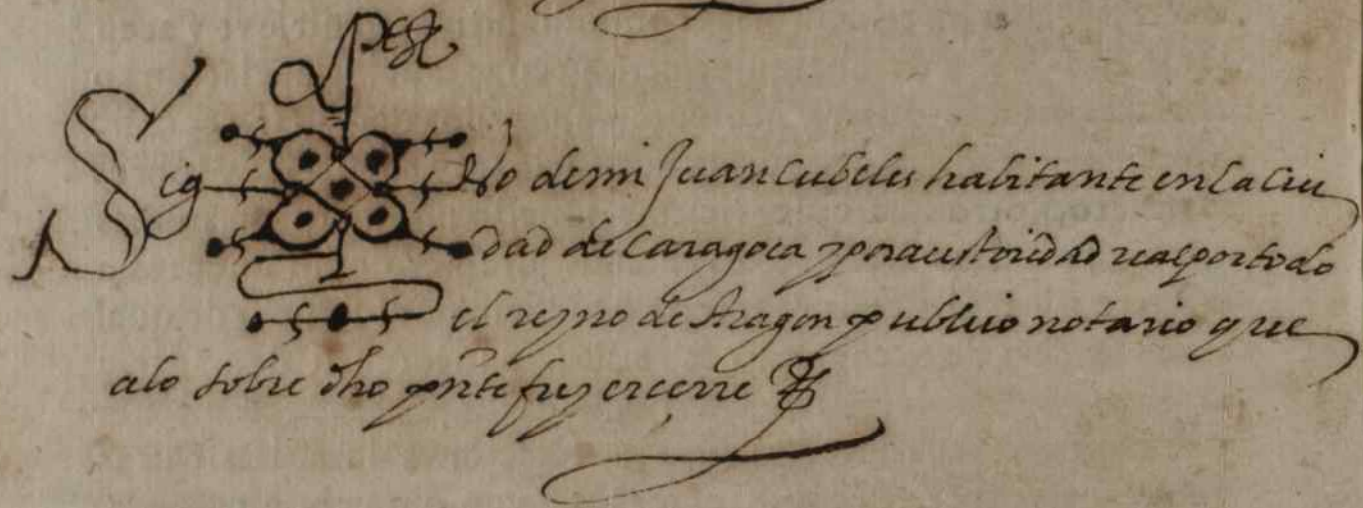 Sig No de mi Juan Cubeles habitante en la ciu
dad de Caragoca y por auctoridad real por todo
el reyno de Aragon publico notario que
a lo sobre dho pnte fuy et cerre